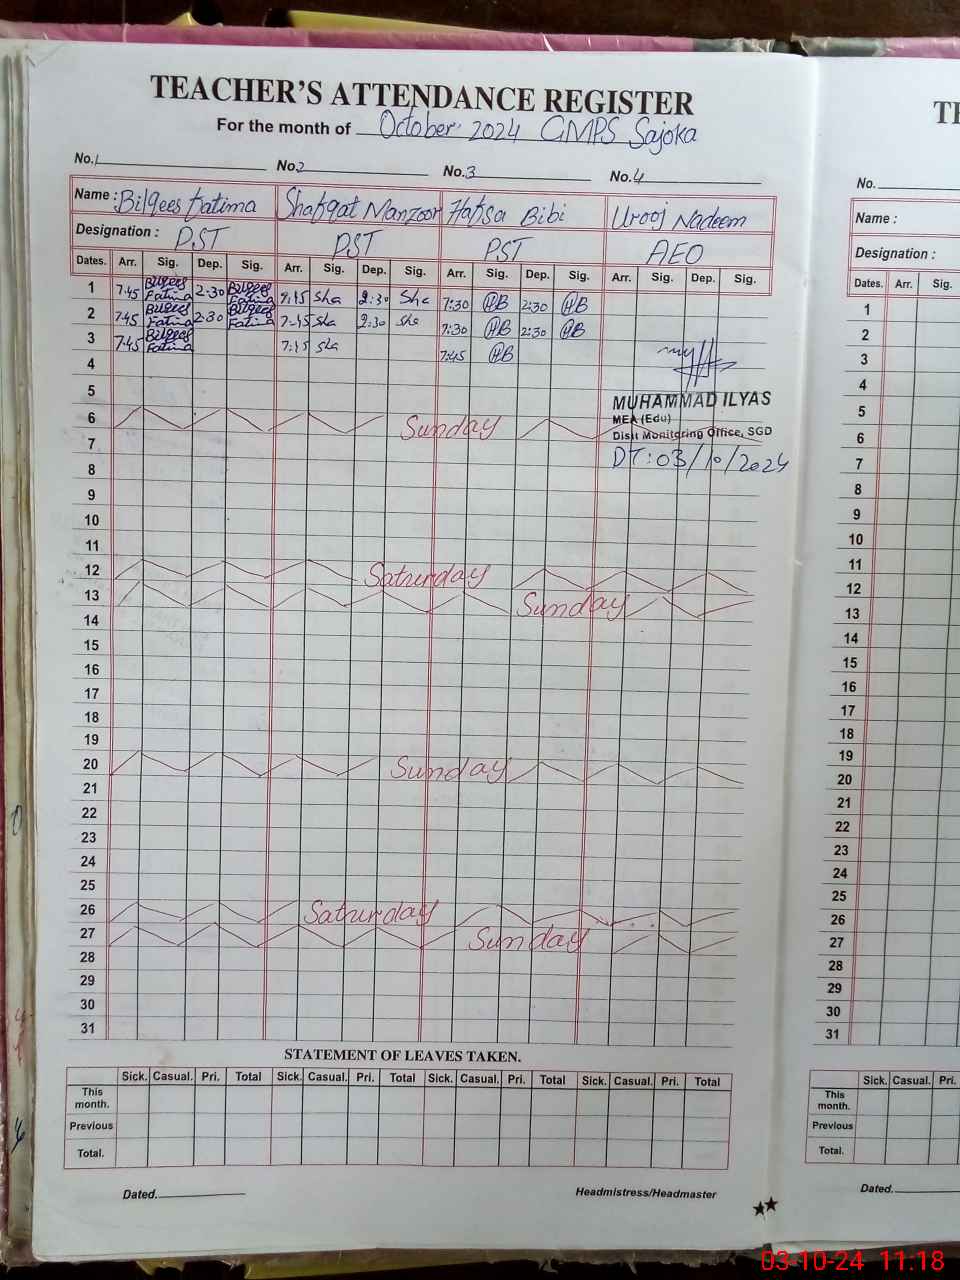 TEACHER'S ATTENDANCE REGISTER
For the month of October 2024 GMPS Sajoka
No. 1 No. 2 No. 3 No. 4
Name : Bilqees Fatima Shafqat Manzoor Hafsa Bibi Urooj Nadeem
Designation : PST PST PST AEO
Dates. Arr. Sig. Dep. Sig. Arr. Sig. Dep. Sig. Arr. Sig. Dep. Sig. Arr. Sig. Dep. Sig.
1 7:45 Bilqees Fatima 2:30 Bilqees Fatima 7:45 Sha 2:30 Sha 7:30 HB 2:30 HB
2 7:45 Bilqees Fatima 2:30 Bilqees Fatima 7:45 Sha 2:30 Sha 7:30 HB 2:30 HB
3 7:45 Bilqees Fatima 7:45 Sha 7:45 HB
4
5 MUHAMMAD ILYAS
MEA (Edu)
6 Sunday Distt Monitoring Office, SGD
7 DT: 03/10/2024
8
9
10
11
12 Saturday
13 Sunday
14
15
16
17
18
19
20 Sunday
21
22
23
24
25
26 Saturday
27 Sunday
28
29
30
31
STATEMENT OF LEAVES TAKEN.
Sick. Casual. Pri. Total Sick. Casual. Pri. Total Sick. Casual. Pri. Total Sick. Casual. Pri. Total
This month.
Previous
Total.
Dated. Headmistress/Headmaster
No.
Name :
Designation :
Dates. Arr. Sig.
1
2
3
4
5
6
7
8
9
10
11
12
13
14
15
16
17
18
19
20
21
22
23
24
25
26
27
28
29
30
31
Sick. Casual. Pri.
This month.
Previous
Total.
Dated.
03-10-24 11:18